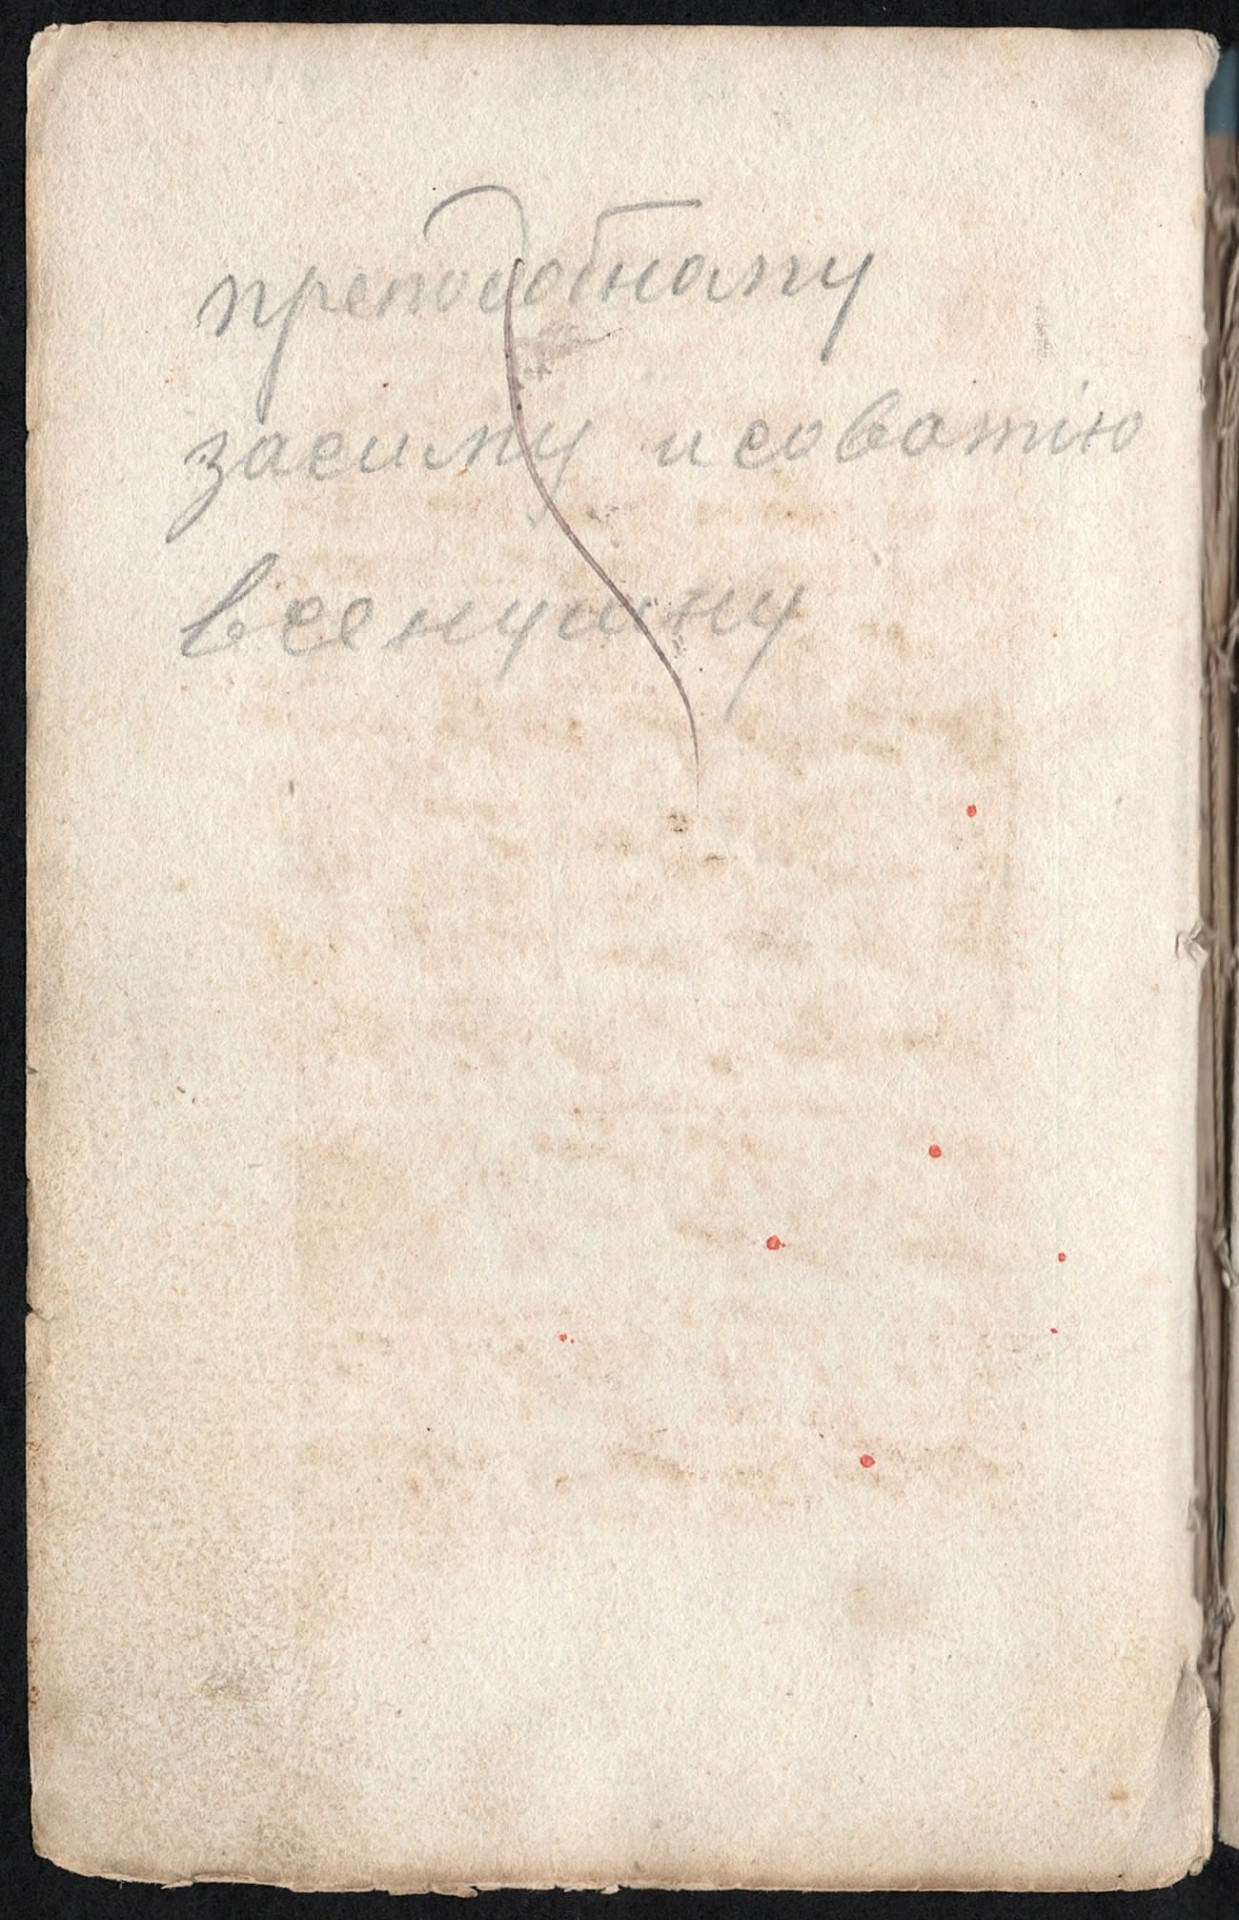 преподобнаму
засиму и соватію
всенушну